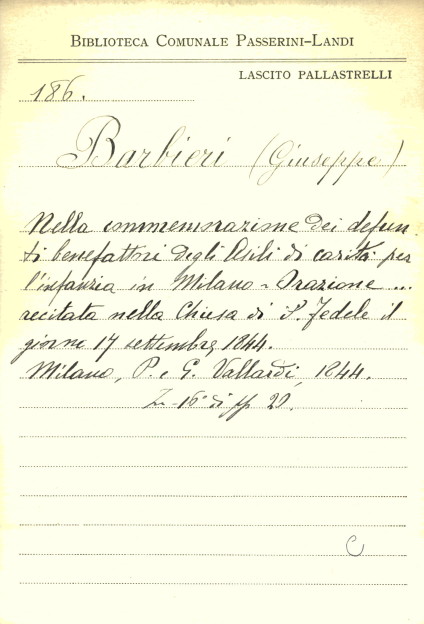 BIBLIOTECA COMUNALE PASSERINI-LANDI
LASCITO PALLASTRELLI
186.
Barbieri (Giuseppe)
Nella commemorazione dei defun
ti benefattori degli Asili di carità per
l'infanzia in Milano - Orazione ...
recitata nella Chiesa di S. Fedele il
giorno 17 settembre 1844.
Milano, P. e G. Vallardi, 1844.
In-16° di pp 20.
C